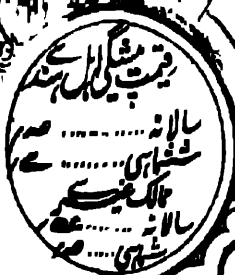 قیمت پیشگی اہل ہند سے
سالانہ ........
ششماہی ........
ممالک غیر سے
سالانہ ......
ششماہی ....